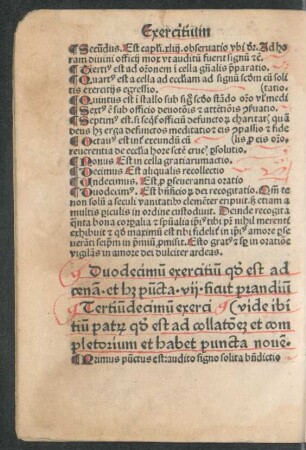 Exercitiũm
¶Secũdus. Est capl̃i. xliij. obseruatio vbi dr̃. Ad ho
ram diuini officij mox vt auditũ fuerit signũ ⁊c̃.
¶Tertiꝰ est ad orõnem i cella gñalis p̱paratio.
¶Quartꝰ est a cella ad ecclesiam ad signũ scḋm cũ soli
tis exercitijs egressio. (tatio.
¶Quintus est i stallo sub signo sedo stãdo orõ vl̃ medi
¶Sextꝰ ẽ sub officio deuotõis ⁊ attẽtõis ꝓsuatio.
¶Septimꝰ est si seqt̃ officiũ defunctoꝝ charitas quã
deus hꝫ erga defunctos meditatio ⁊ eis ꝯpassio ⁊ fide
¶Octauꝰ est inf eccundũ (lis ꝓ eis orõ.
reuerentia de ecclesia hore scḋe psolutio.
¶Nonus Est in cella gratiarumactio.
¶Decimus Est aliqualis recollectio
¶Undecimus. Est ꝓ perseuerantia oratio
¶Duodecimꝰ. Est bñficioꝝ dei recogitatio. Qm̃ te
non solũ a seculi vanitatibꝰ clemẽter eripuit. sꝫ etiam a
multis piculis in ordine custodiuit. Deinde recogita
quãta bona corpalia ⁊ spũalia tibi ꝑ nihil merenti
exhibuit ⁊ qđ maximũ est tibi fideli in ipsiꝰ amore pse
ueráti seipm̃ in premiũ ꝓmisit. Esto gratꝰ ⁊ sp̱ in oratiõe
vigilás in amore dei dulciter ardeas.
¶Duodecimũ exercitiũ qđ est ad
cenã. et hꝫ pũcta. vij. sicut prandiũ
¶Tertiũdecimũ exerci (vide ibi
tiũ patrꝫ qđ est ad collatõeꝫ et com
pletorium et habet puncta nouẽ.
¶Primus pũctus est: audito signo solita bñdictio